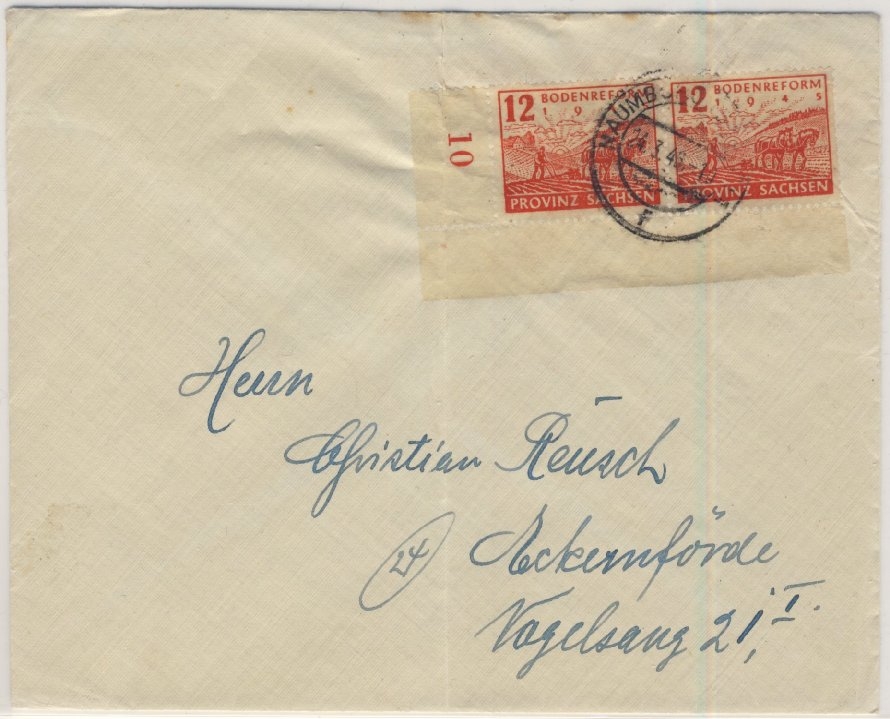 12 BODENREFORM
19
PROVINZ SACHSEN
12 BODENREFORM
1945
PROVINZ SACHSEN
10
NAUMBU
24
f
Herrn
Christian Reusch
(24) Eckernförde
Vogelsang 21, I.